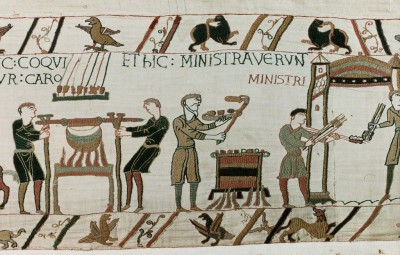 IC: COQVI
VR: CARO
ET hIC: MINISTRAVERVN
MINISTRI